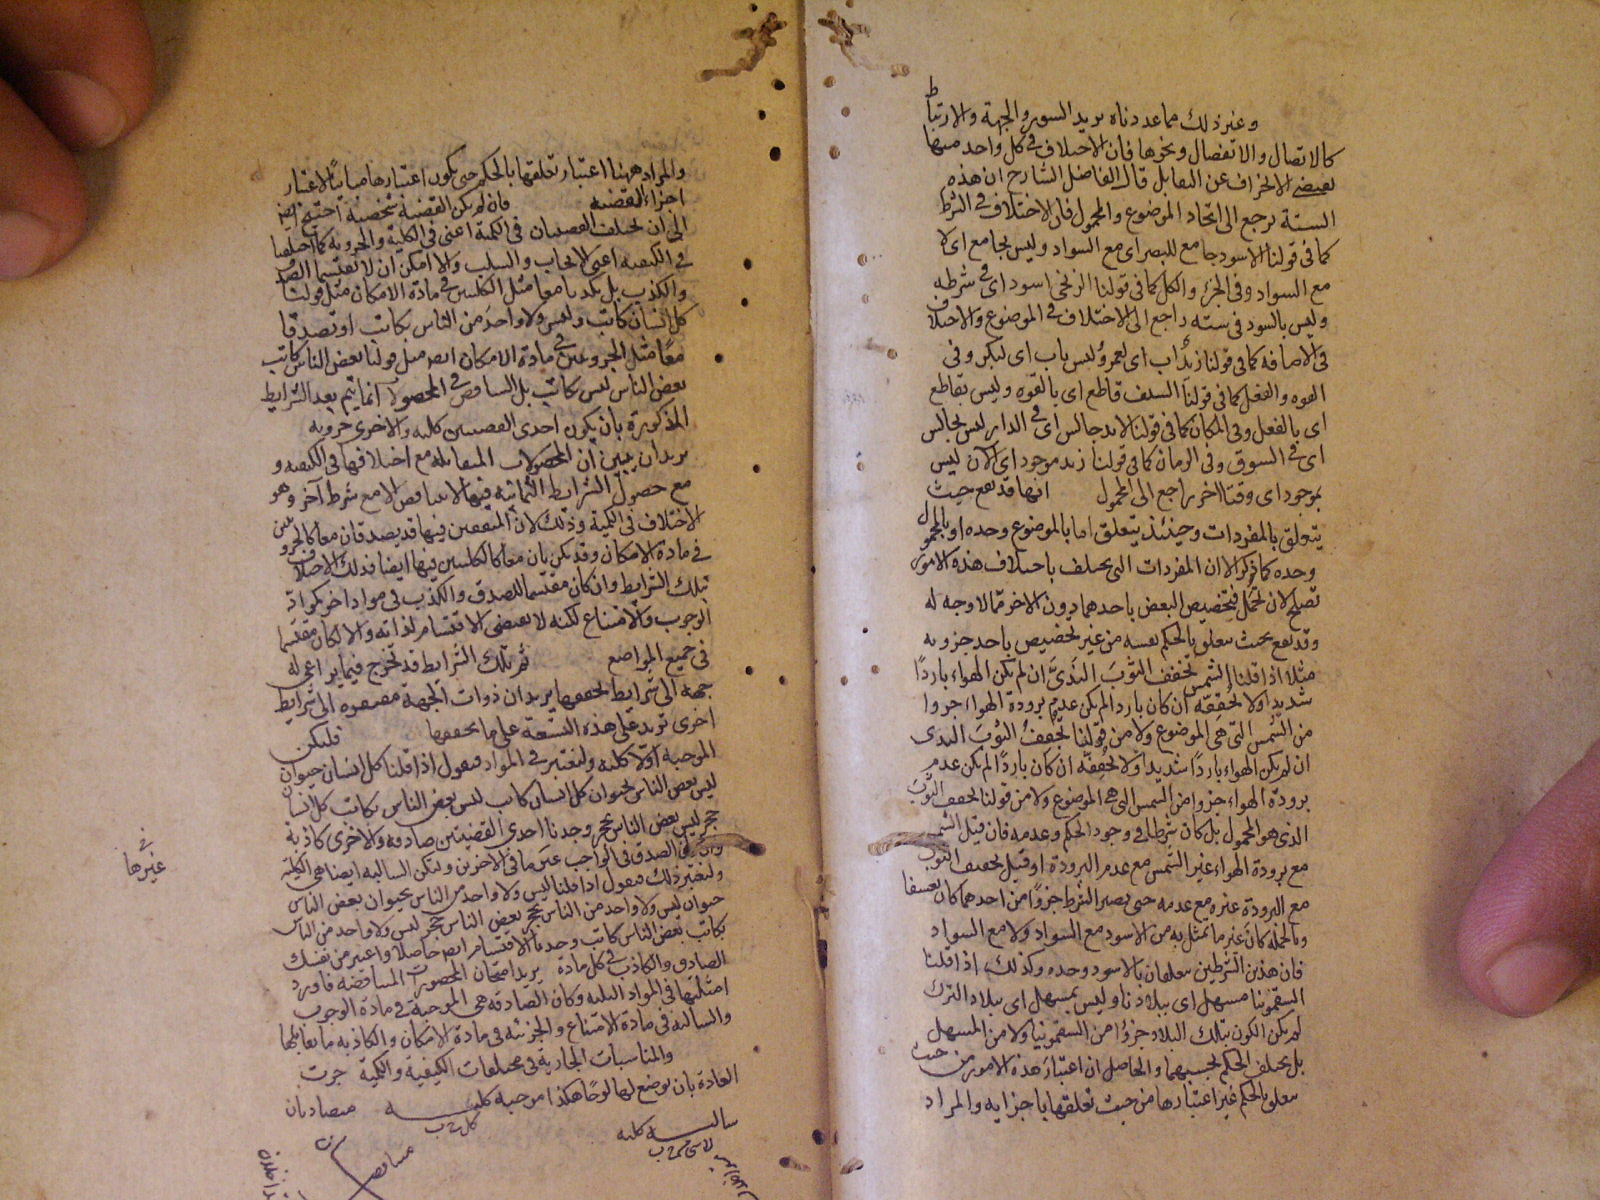 وغير ذلك مما عددناه يريد السور والجهة والارتباط
كالاتصال والانفصال ونحوها فان الاختلاف في كل واحد منها
يقتضي الانحراف عن التقابل قال الفاضل الشارح ان هذه
الستة يرجع الى اتحاد الموضوع والمحمول فان الاختلاف في الشرط
كما في قولنا الاسود جامع للبصر اى مع السواد وليس بجامع اى لا
مع السواد وفي الجزء والكل كما في قولنا الزنجي اسود اى في
وليس باسود في راجع الى الاختلاف في الموضوع والاختلاف
في الاضافة كما في قولنا زيد اب اى لعمرو ليس باب اى لبكر وفي
القوة والفعل كما في قولنا السيف قاطع اى بالقوة وليس بقاطع
اى بالفعل وفي المكان كما في قولنا زيد جالس اى في الدار ليس بجالس
اى في السوق وفي الزمان كما في قولنا زيد موجود اى الان ليس
بموجود اى وقتا اخر راجع الى المحمول انها قد تقع حيث
يتعلق بالمفردات وحينئذ يتعلق اما بالموضوع وحده او بالمحمول
وحده كما ذكر الا ان المفردات التي يختلف باختلاف هذه الامور
تصلح لان فتخصيص البعض باحدهما دون الاخر مما لا وجه له
وقد تقع بحيث يتعلق بالحكم نفسه من غير تخصيص باحد جزويه
مثلا اذا قلنا الشمس تجفف الثوب الندي ان لم يكن الهواء باردا
شديدا ولا تجففه ان كان باردا لم يكن عدم برودة الهواء جزوا
من الشمس التي هي الموضوع ولا من قولنا تجفف الثوب الندي
ان لم يكن الهواء باردا شديدا ولا تجففه ان كان باردا لم يكن عدم
برودة الهواء جزوا من الشمس التي هي الموضوع ولا من قولنا تجفف الثوب
الذي هو المحمول بل كان شرطا في وجود الحكم وعدمه فان قيل الشمس
مع برودة الهواء غير الشمس مع عدم البرودة او قيل تجفيف الثوب
مع البرودة غيره مع عدمه حتى يصير الشرط جزوا من احدهما كان تعسفا
وبالجملة كان غير ما تمثل به من الاسود مع السواد ولا مع السواد
فان هذين الشرطين يتعلقان بالاسود وحده وكذلك اذا قلنا
السقمونيا مسهل اى ببلادنا وليس بمسهل اى ببلاد الترك
لم يكن الكون بتلك البلاد جزوا من السقمونيا ولا من المسهل
بل يختلف الحكم بحسبهما والحاصل ان اعتبار هذه الامور من حيث
يتعلق بالحكم غير اعتبارها من حيث تعلقها باجزايه والمراد
والمراد ههنا اعتبار تعلقها بالحكم حتى يكون اعتبارها مباينا لاعتبار
اجزاء القضية فان لم يكن القضية شخصية احتيج ايضا
الى ان يختلف القضيتان في الكمية اعني في الكلية والجزوية كما اختلفا
في الكيفية اعني الايجاب والسلب والا امكن ان لا تقتسما الصدق
والكذب بل تكذبا معا مثل الكليتين في مادة الامكان مثل قولنا
كل انسان كاتب وليس ولا واحد من الناس بكاتب او تصدقا
معا مثل الجزويتين في مادة الامكان ايضا مثل قولنا بعض الناس كاتب
بعض الناس ليس كاتب بل التناقض في المحصورات انما يتم بعد الشرايط
المذكورة بان يكون احدى القضيتين كلية والاخرى جزوية
يريد ان يبين ان المحصورات المتقابلة مع اختلافها في الكيفية و
مع حصول الشرايط الثمانية فيها لا يتناقض الا مع شرط آخر وهو
الاختلاف في الكمية وذلك لان المتفقتين فيها قد يصدقان معا كالجزويتين
في مادة الامكان وقد يكذبان معا كالكليتين فيها ايضا فذلك الاختلاف
بتلك الشرايط وان كان مقتسما للصدق والكذب في مواد اخر كمواد
الوجوب والامتناع لكنه لا يقتضي الاقتسام لذاته والا لكان مقتسما
في جميع المواضع ثم تلك الشرايط قد تحوج فيما يراعى له
جهة الى شرايط تحققها يريد ان ذوات الجهة مفتقرة الى شرايط
اخرى تزيد على هذه التسعة على ما تحققها فليكن
الموجبة اولا كلية ولنعتبر في المواد فنقول اذا قلنا كل انسان حيوان
ليس بعض الناس بحيوان كل انسان كاتب ليس بعض الناس بكاتب كل انسان
حجر ليس بعض الناس بحجر وجدنا احدى القضيتين صادقة والاخرى كاذبة
وان كان الصدق في الواجب غير ما في الاخرين ولتكن السالبة ايضا هي الكلية
ولنعتبر ذلك فنقول اذا قلنا ليس ولا واحد من الناس بحيوان بعض الناس
حيوان ليس ولا واحد من الناس بحجر بعض الناس حجر ليس ولا واحد من الناس
بكاتب بعض الناس كاتب وجدنا الاقتسام ايضا حاصلا واعتبر من نفسك
الصادق والكاذب في كل مادة يريد امتحان المحصورات المتناقضة فاورد
امثلتها في المواد الثلثة وكان الصادقة هي الموجبة في مادة الوجوب
والسالبة في مادة الامتناع والجزئية في مادة الامكان والكاذبة ما تقابلها
والمناسبات الجارية في مختلفات الكيفية والكمية جرت
العادة بان يوضع لها لوحا هكذا موجبة كلية متضادتان
كل ب
سالبة كلية
غيرها